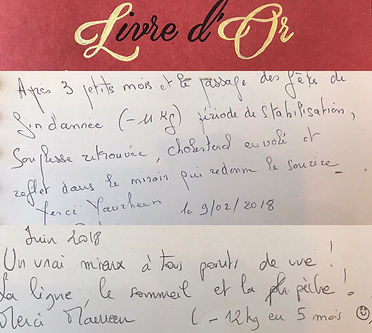 Livre d'Or
Après 3 petits mois et le passage des fêtes de
fin d'année (-11 Kg) période de stabilisation,
Souplesse retrouvée, cholesterol envolé et
reflet dans le miroir qui redonne le sourire_
Merci Maureen le 9/02/2018
Juin 2018
Un vrai mieux à tous points de vue!
La ligne, le sommeil et la pêche!
Merci Maureen (-12 kg en 5 mois ☺)